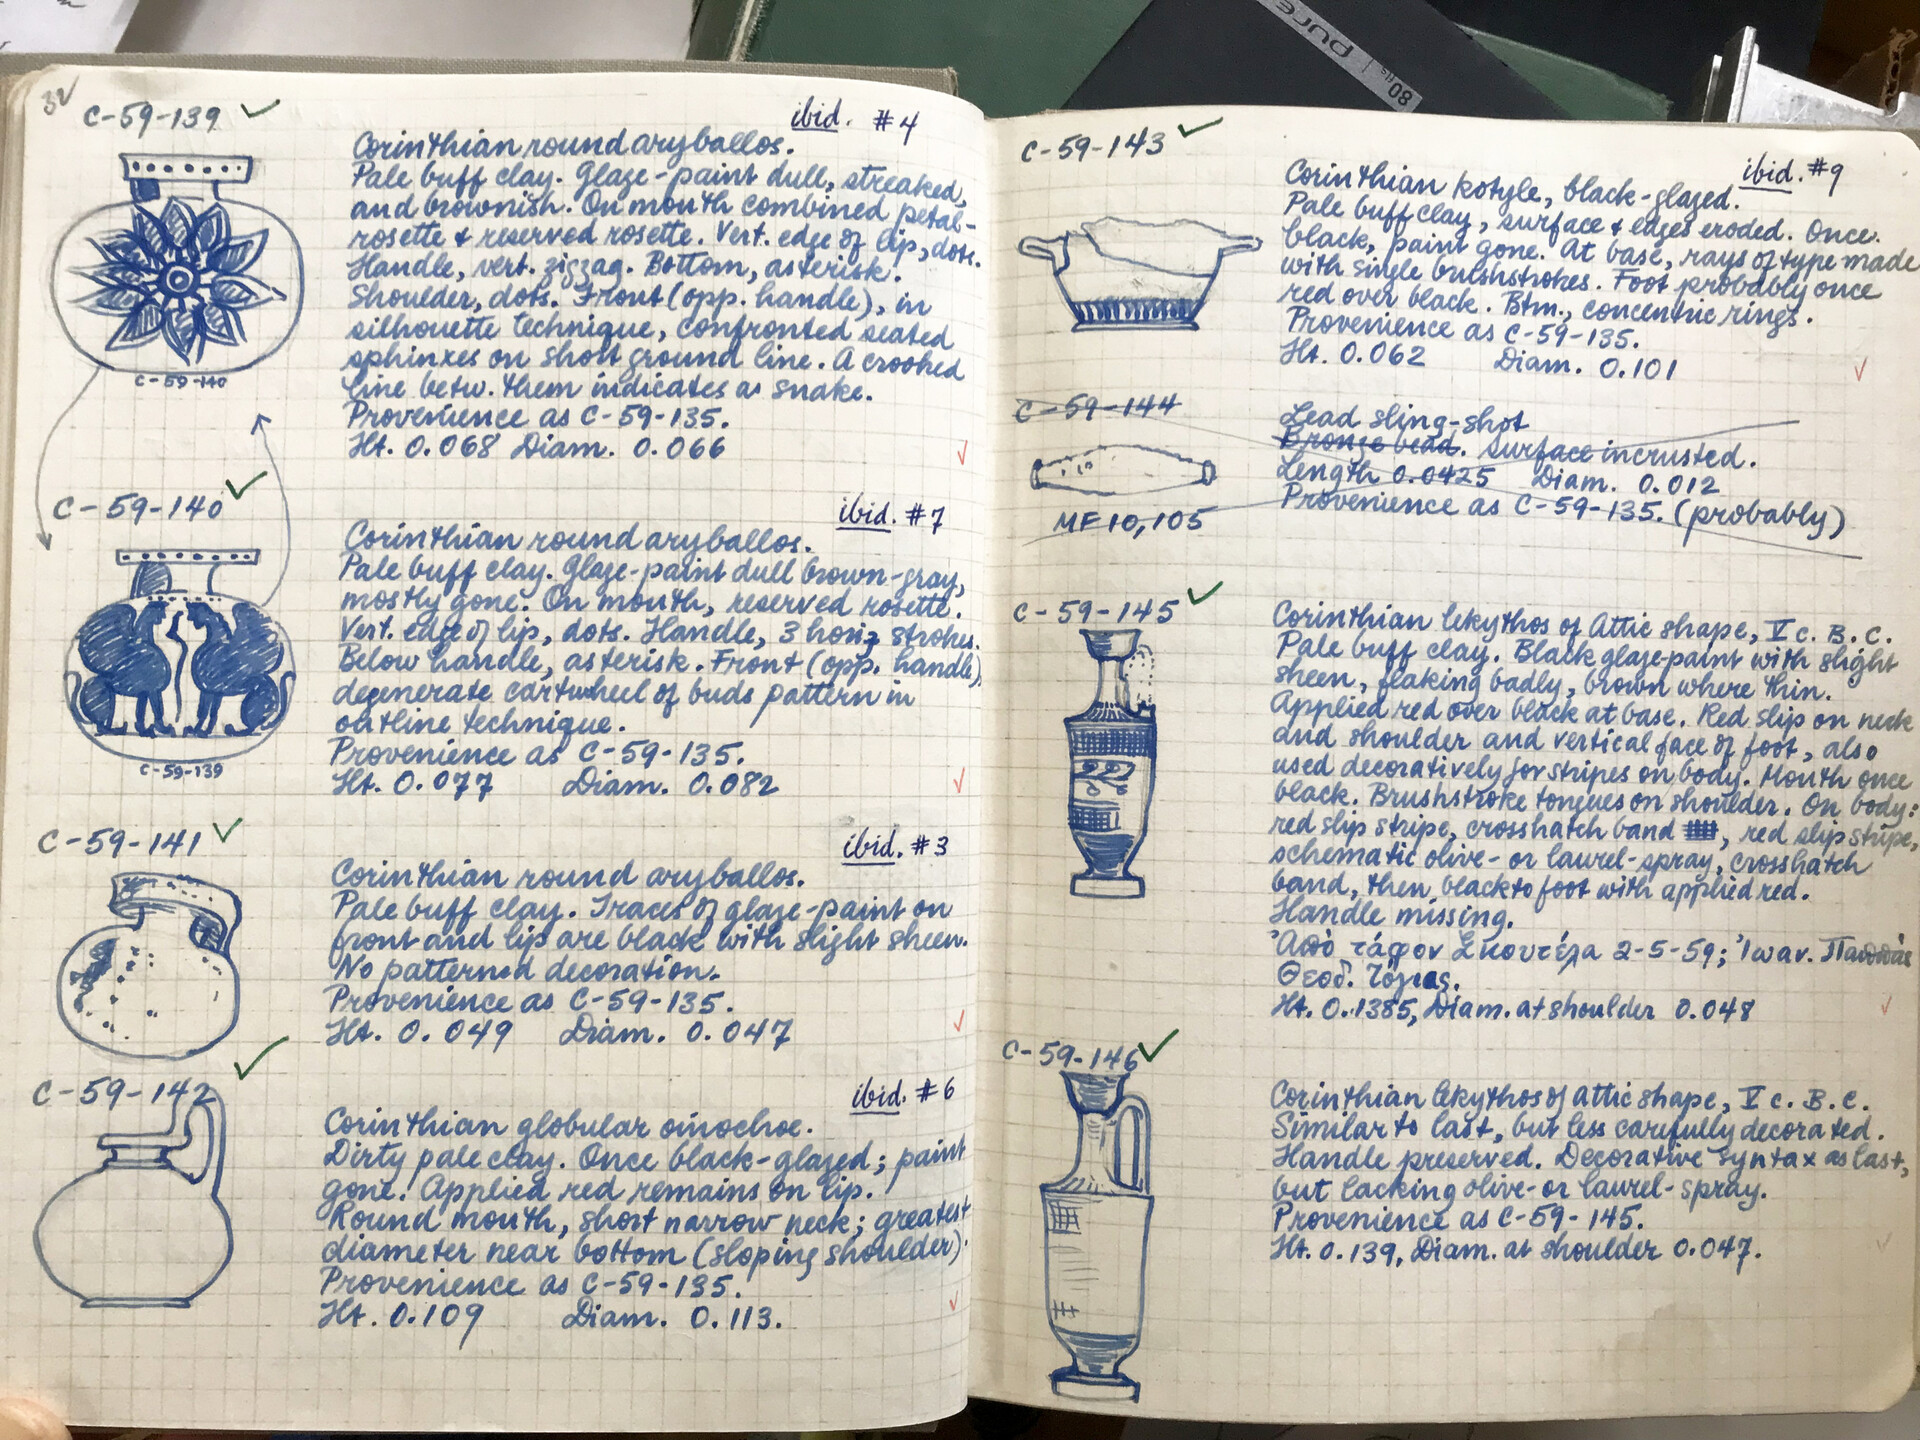 32
C-59-139
ibid. #4
Corinthian round aryballos.
Pale buff clay. Glaze-paint dull, streaked,
and brownish. On mouth combined petal-
rosette + reserved rosette. Vert. edge of lip, dots.
Handle, vert. zigzag. Bottom, asterisk.
Shoulder, dots. Front (opp. handle), in
silhouette technique, confronted seated
sphinxes on short ground line. A crooked
line betw. them indicates a snake.
Provenience as C-59-135.
Ht. 0.068 Diam. 0.066
C-59-140
C-59-140
ibid. #7
Corinthian round aryballos.
Pale buff clay. Glaze-paint dull brown-gray,
mostly gone. On mouth, reserved rosette.
Vert. edge of lip, dots. Handle, 3 horiz strokes.
Below handle, asterisk. Front (opp. handle),
degenerate cartwheel of buds pattern in
outline technique.
Provenience as C-59-135.
Ht. 0.077 Diam. 0.082
C-59-139
C-59-141
ibid. #3
Corinthian round aryballos.
Pale buff clay. Traces of glaze-paint on
front and lip are black with slight sheen.
No patterned decoration.
Provenience as C-59-135.
Ht. 0.049 Diam. 0.047
C-59-142
ibid. #6
Corinthian globular oinochoe.
Dirty pale clay. Once black-glazed; paint
gone. Applied red remains on lip.
Round mouth, short narrow neck; greatest
diameter near bottom (sloping shoulder).
Provenience as C-59-135.
Ht. 0.109 Diam. 0.113.
C-59-143
ibid. #9
Corinthian kotyle, black-glazed.
Pale buff clay, surface + edges eroded. Once
black, paint gone. At base, rays of type made
with single brushstrokes. Foot probably once
red over black. Btm., concentric rings.
Provenience as C-59-135.
Ht. 0.062 Diam. 0.101
C-59-144
Lead sling-shot
Bronze bead. Surface incrusted.
Length 0.0425 Diam. 0.012
Provenience as C-59-135. (probably)
MF 10,105
C-59-145
Corinthian lekythos of Attic shape, V c. B.C.
Pale buff clay. Black glaze-paint with slight
sheen, flaking badly, brown where thin.
Applied red over black at base. Red slip on neck
and shoulder and vertical face of foot, also
used decoratively for stripes on body. Mouth once
black. Brushstroke tongues on shoulder. On body:
red slip stripe, crosshatch band, red slip stripe,
schematic olive- or laurel-spray, crosshatch
band, then black to foot with applied red.
Handle missing.
Ἀπὸ τάφον Σκουτέλα 2-5-59; Ἰωαν.
Θεοδ.
Ht. 0.1385, Diam. at shoulder 0.048
C-59-146
Corinthian lekythos of Attic shape, V c. B.C.
Similar to last, but less carefully decorated.
Handle preserved. Decorative syntax as last,
but lacking olive- or laurel-spray.
Provenience as C-59-145.
Ht. 0.139, Diam. at shoulder 0.047.
pure
80 fls